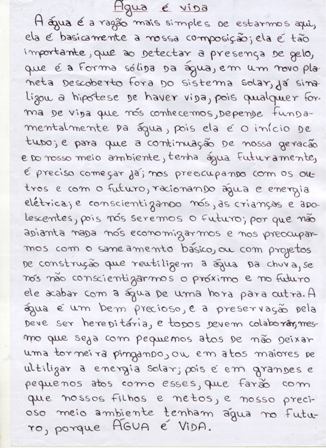 Água é vida
A água é a razão mais simples de estarmos aqui,
ela é basicamente a nossa composição; ela é tão
importante, que ao detectar a presença de gelo,
que é a forma sólida da água, em um novo pla-
neta descoberto fora do sistema solar, já sina-
lizou a hipótese de haver vida, pois qualquer for-
ma de vida que nós conhecemos, depende funda-
mentalmente da água, pois ela é o início de
tudo; e para que a continuação de nossa geração
e do nosso meio ambiente, tenha água futuramente,
é preciso começar já; nos preocupando com os ou-
tros e com o futuro, racionando água e energia
elétrica; e conscientizando nós, as crianças e ado-
lescentes, pois nós seremos o futuro; por que não
adianta nada nós economizarmos e nos preocupar-
mos com o saneamento básico, ou com projetos
de construção que reutiligem a água da chuva, se
nós não conscientizarmos o próximo e no futuro
ele acabar com a água de uma hora para outra. A
água é um bem precioso, e a preservação dela
deve ser hereditária, e todos devem colaborar, mes-
mo que seja com pequenos atos de não deixar
uma torneira pingando, ou em atos maiores de
ultilizar a energia solar; pois é em grandes e
pequenos atos como esses, que farão com
que nossos filhos e netos, e nosso preci-
oso meio ambiente tenham água no futu-
ro, porque ÁGUA É VIDA.